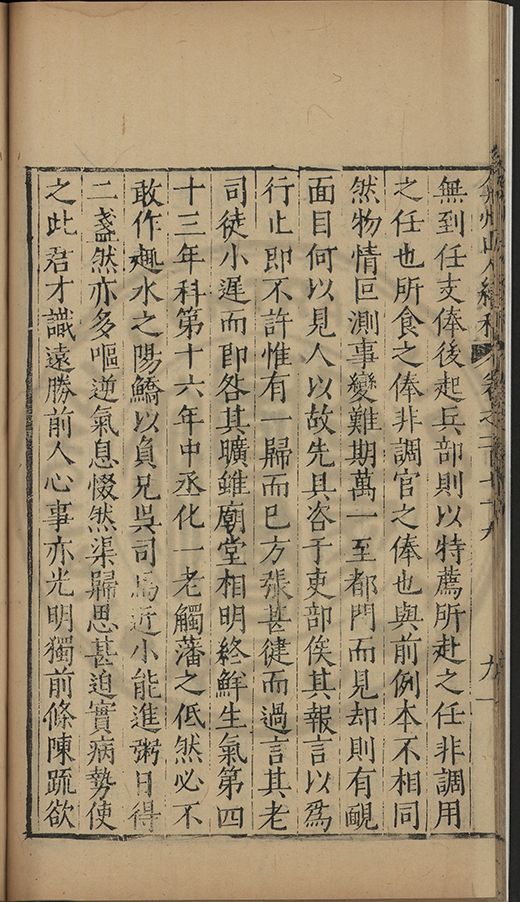 無到任支俸後起兵部則以特薦所赴之任非調用
之任也所食之俸非調官之俸也與前例本不相同
然物情叵測事變難期萬一至都門而見却則有靦
面目何以見人以故先具咨于吏部俟其報言以爲
行止即不許惟有一歸而已方張甚健而過言其老
司徒小遲而即咎其曠雖廟堂相明終鮮生氣第四
十三年科第十六年中丞化一老觸藩之羝然必不
敢作趣水之陽鱎以負兄吳司馬近小能進粥日得
二盞然亦多嘔逆氣息惙然渠歸思甚迫實病勢使
之此君才識遠勝前人心事亦光明獨前條陳疏欲
弇州山人續稿 卷之一百七十九 九